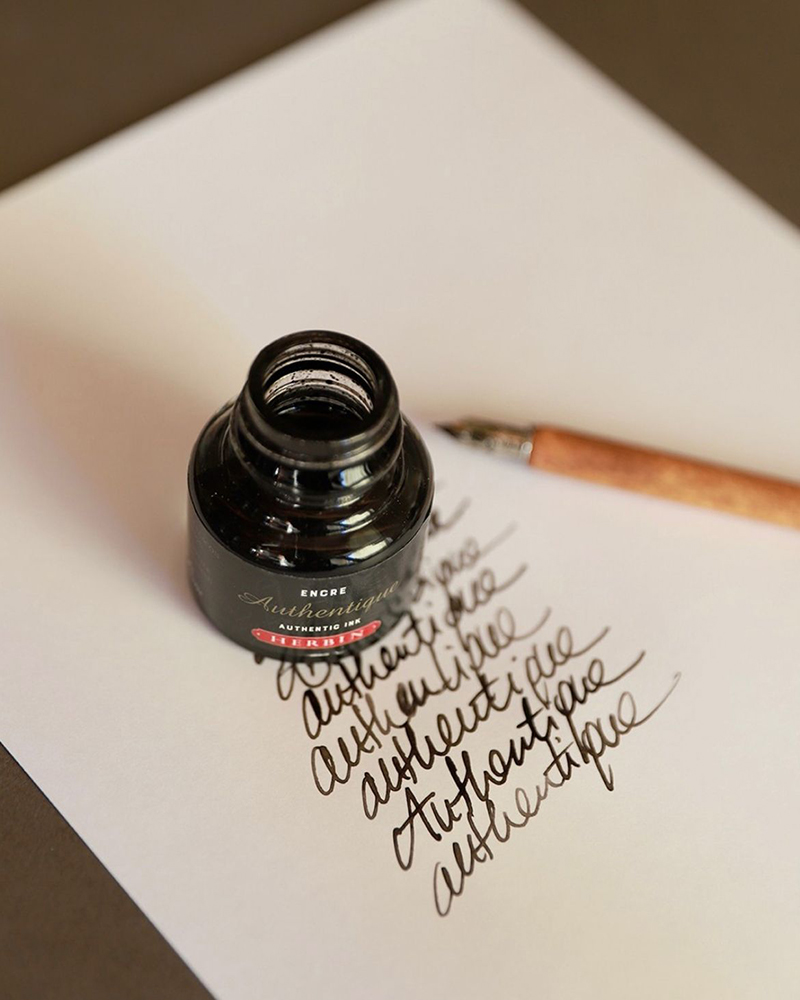 ENCRE
Authentique
AUTHENTIC INK
HERBIN
authentique
authentique
authentique
Authentique
authentique